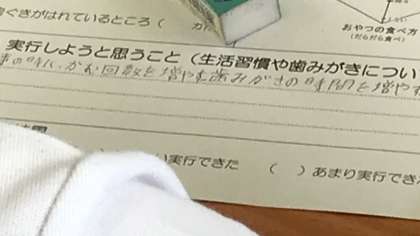 ぐきがはれているところ（　カ
おやつの食べ方
（だらだら食べ）
実行しようと思うこと（生活習慣や歯みがきについ
事の時、かむ回数を増やす歯みがきの時間を増やす
い実行できた　（　）あまり実行できた